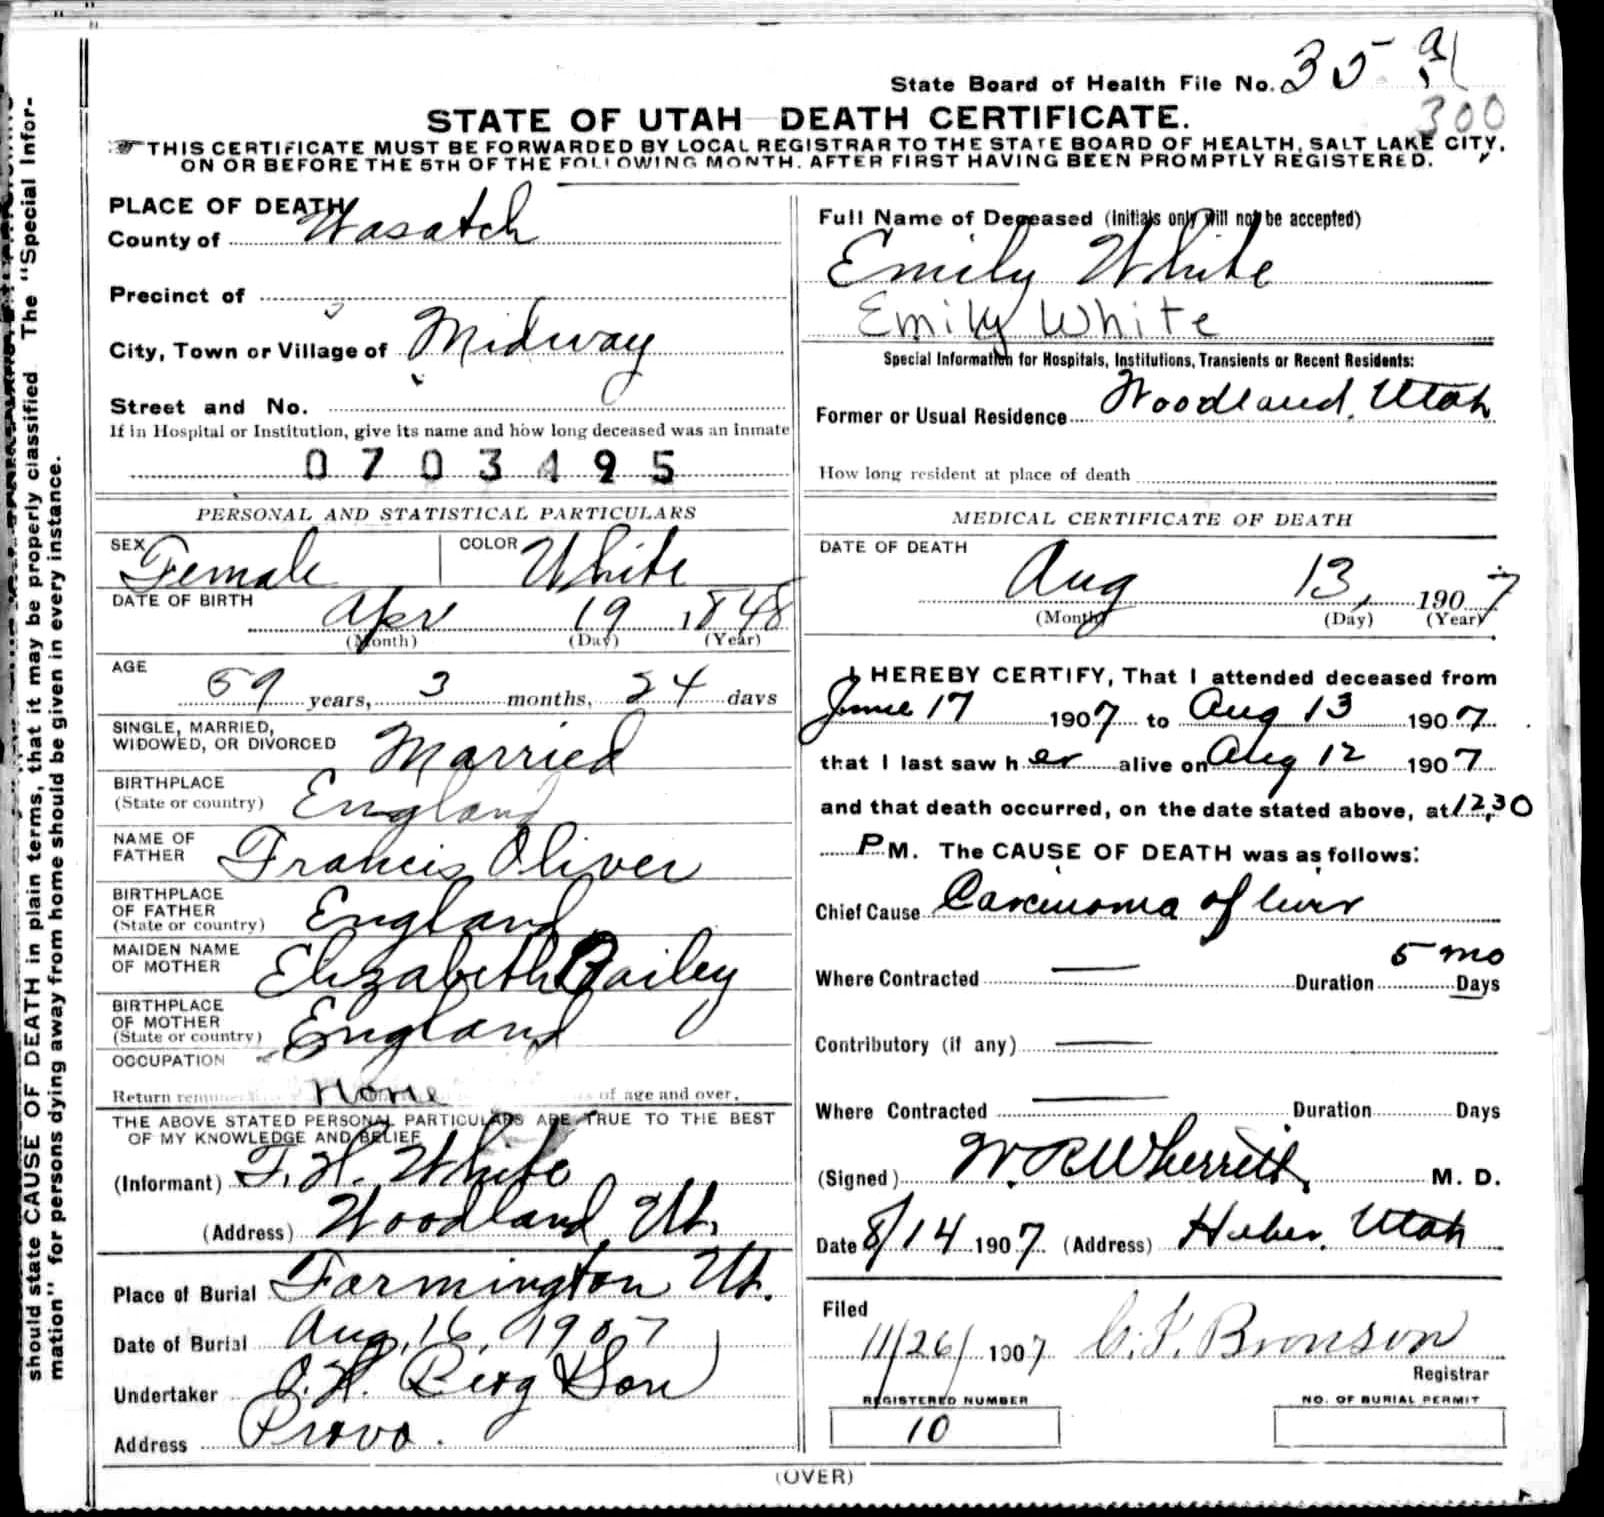 State Board of Health File No. 35
300
STATE OF UTAH DEATH CERTIFICATE.
THIS CERTIFICATE MUST BE FORWARDED BY LOCAL REGISTRAR TO THE STATE BOARD OF HEALTH, SALT LAKE CITY,
ON OR BEFORE THE 5TH OF THE FOLLOWING MONTH. AFTER FIRST HAVING BEEN PROMPTLY REGISTERED.
should state CAUSE OF DEATH in plain terms, that it may be properly classified. The "Special Infor-
mation" for persons dying away from home should be given in every instance.
PLACE OF DEATH
County of Wasatch
Precinct of
City, Town or Village of Midway
Street and No.
If in Hospital or Institution, give its name and how long deceased was an inmate
0703495
PERSONAL AND STATISTICAL PARTICULARS
SEX Female COLOR White
DATE OF BIRTH Apr 19 1848
(Month) (Day) (Year)
AGE
59 years, 3 months, 24 days
SINGLE, MARRIED,
WIDOWED, OR DIVORCED Married
BIRTHPLACE
(State or country) England
NAME OF
FATHER Francis Oliver
BIRTHPLACE
OF FATHER
(State or country) England
MAIDEN NAME
OF MOTHER Elizabeth Bailey
BIRTHPLACE
OF MOTHER
(State or country) England
OCCUPATION
Return None of age and over.
THE ABOVE STATED PERSONAL PARTICULARS ARE TRUE TO THE BEST
OF MY KNOWLEDGE AND BELIEF
(Informant) F. H. White
(Address) Woodland Ut.
Place of Burial Farmington Ut.
Date of Burial Aug. 16, 1907
Undertaker Berg & Son
Address Provo.
Full Name of Deceased (Initials only will not be accepted)
Emily White
Emily White
Special Information for Hospitals, Institutions, Transients or Recent Residents:
Former or Usual Residence Woodland, Utah
How long resident at place of death
MEDICAL CERTIFICATE OF DEATH
DATE OF DEATH
Aug 13, 1907
(Month) (Day) (Year)
I HEREBY CERTIFY, That I attended deceased from
June 17 1907 to Aug 13 1907
that I last saw her alive on Aug 12 1907
and that death occurred, on the date stated above, at 12,30
P M. The CAUSE OF DEATH was as follows:
Chief Cause Carcinoma of liver
Where Contracted — Duration 5 mo Days
Contributory (if any) —
Where Contracted — Duration Days
(Signed) W. R. Wherritt M. D.
Date 8/14 1907 (Address) Heber, Utah
Filed
11/26/1907 Bronson
Registrar
REGISTERED NUMBER
10
NO. OF BURIAL PERMIT
(OVER)